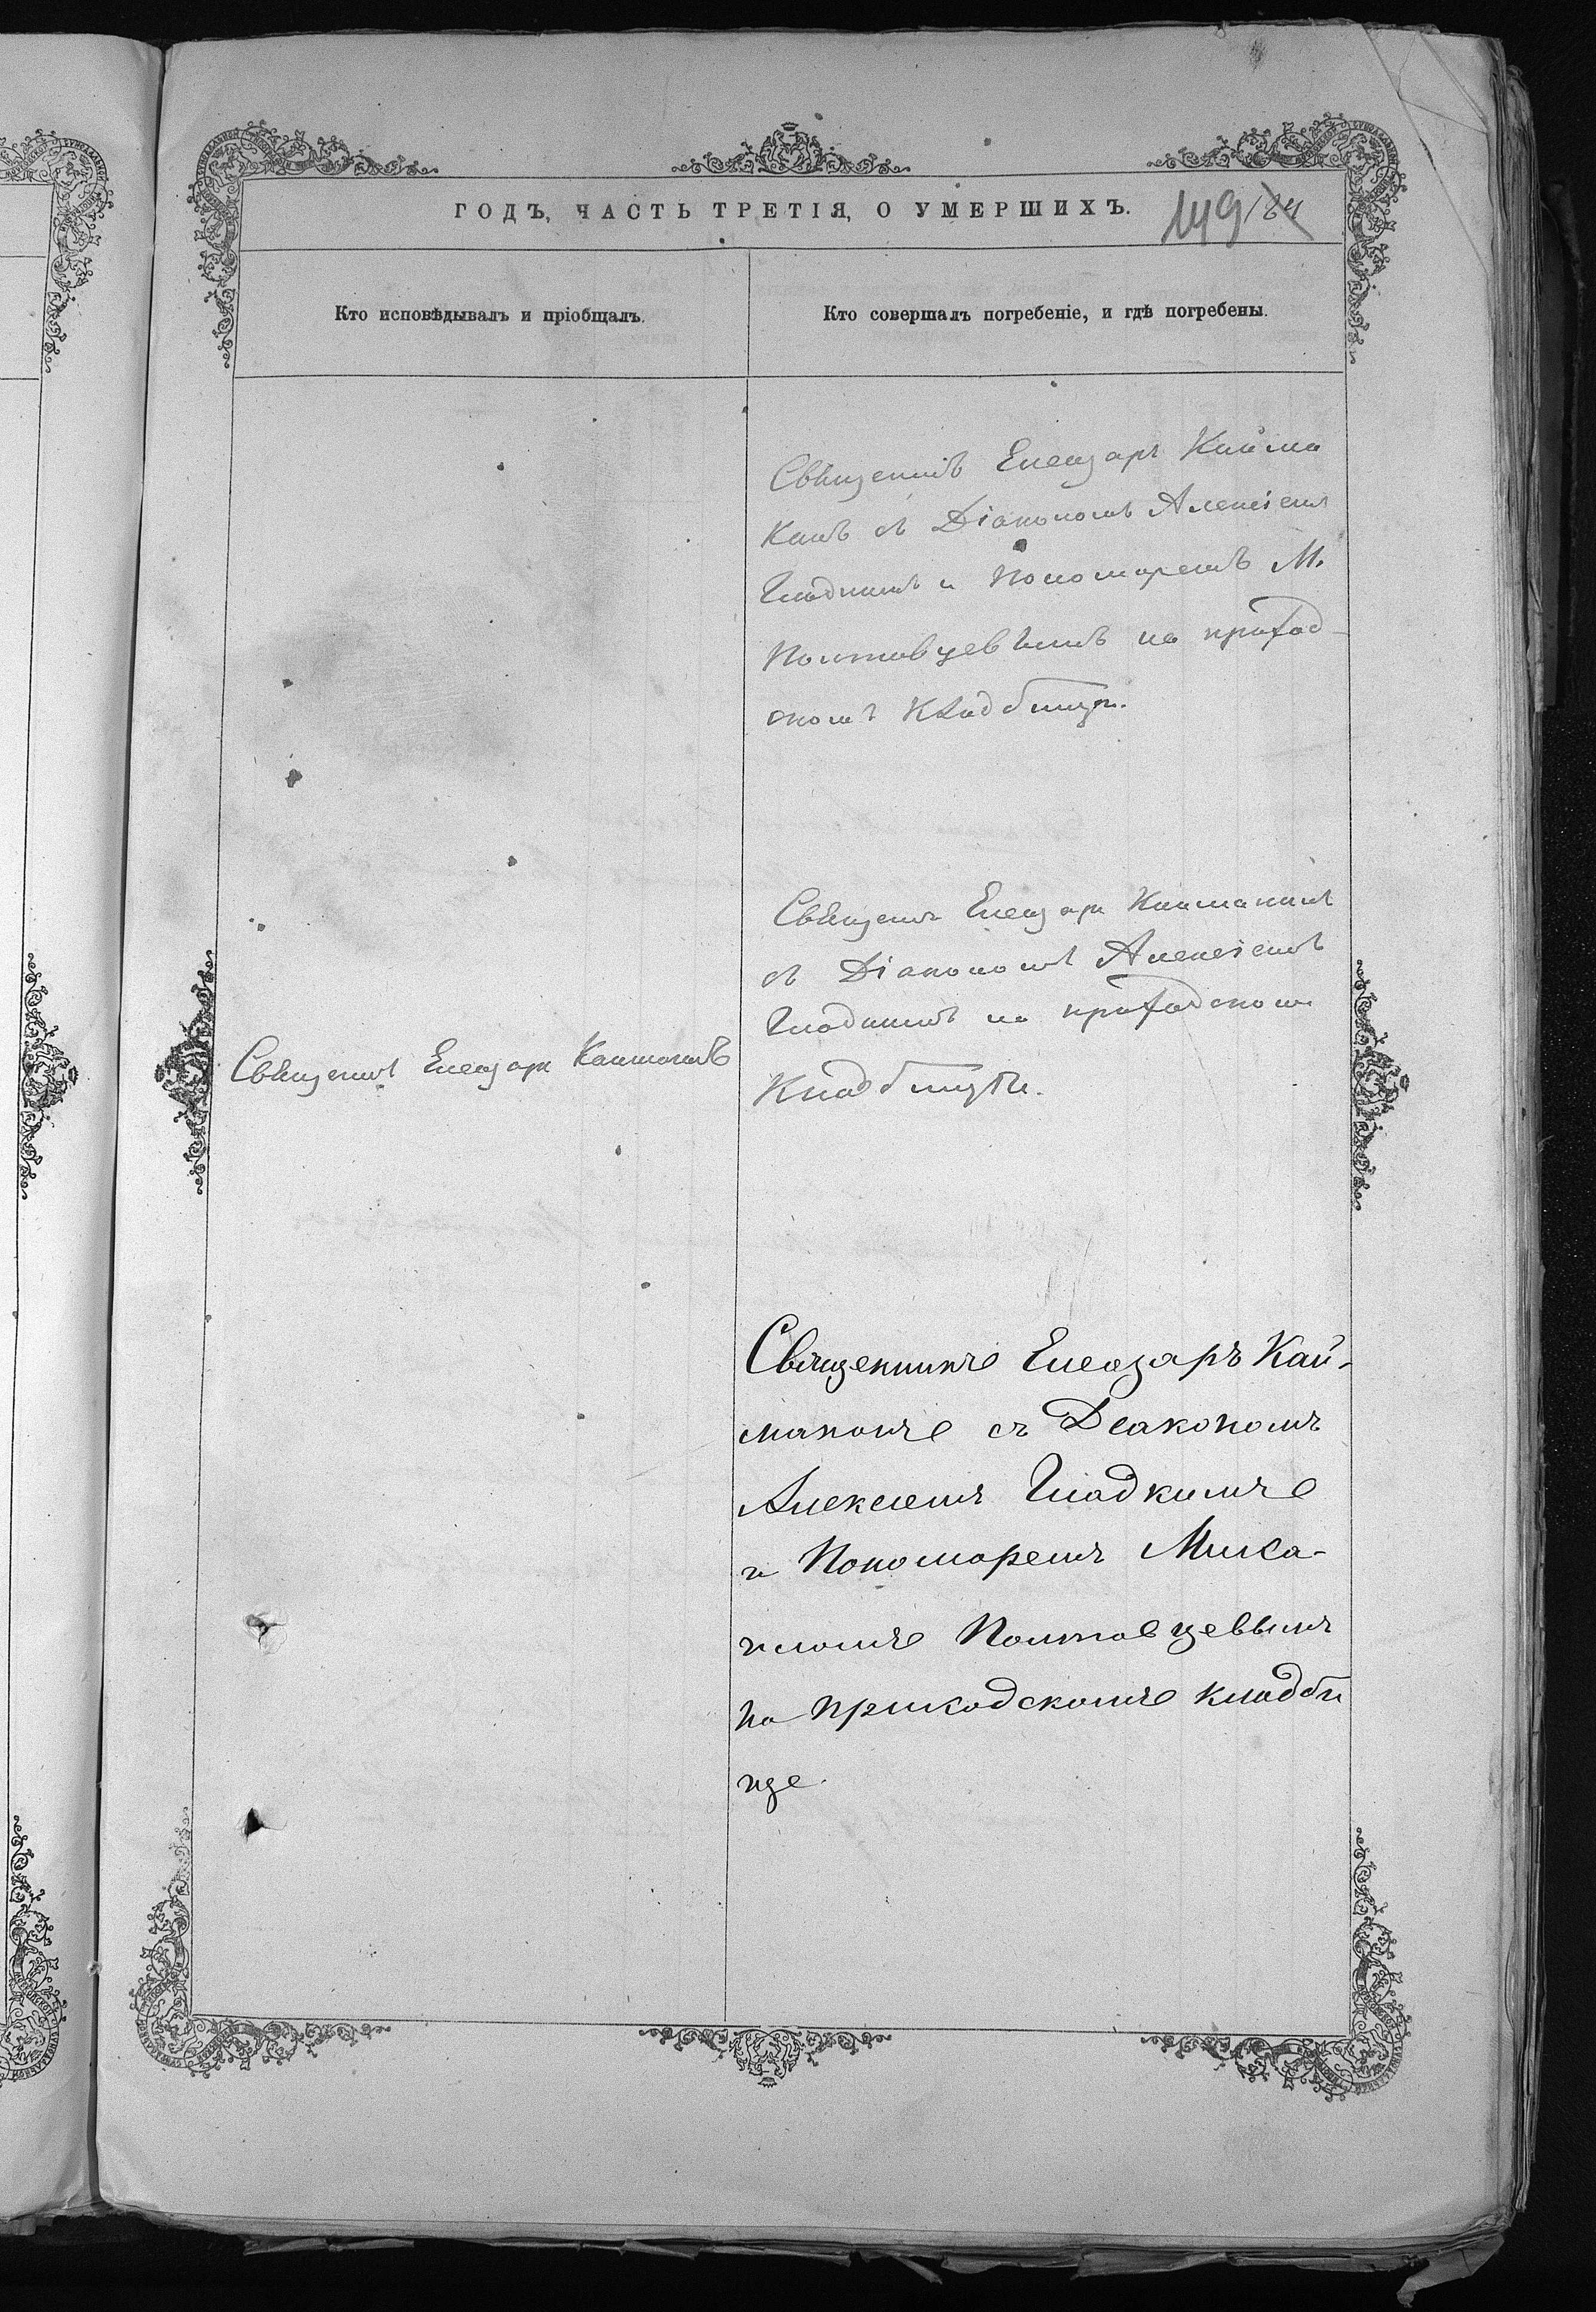 ГОДЪ, ЧАСТЬ ТРЕТІЯ, О УМЕРШИХЪ.
149/84
Кто исповѣдывалъ и пріобщалъ.
Кто совершалъ погребеніе, и гдѣ погребены.
Священикъ Елеазаръ Кайма
канъ съ Діакономъ Алексіемъ
Гладкимъ и Пономаремъ М.
Полтавцевымъ на приход-
скомъ Кладбищѣ.
Священъ Елеазаръ Кайманъ
съ Діакономъ Алексіемъ
Гладкимъ на приходскомъ
Кладбищѣ.
Священъ Елеазаръ Кайманъ
Священникъ Елеазаръ Кай-
маномъ съ Деакономъ
Алексеемъ Гладкимъ
и Пономоремъ Миха-
иломъ Полтавцевымъ
на приходскомъ кладби
ще